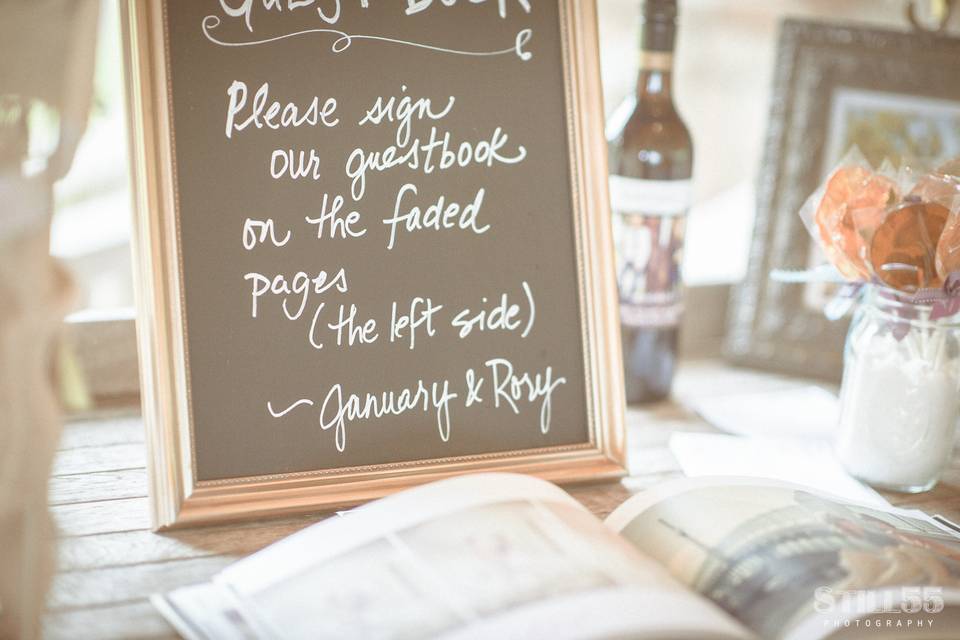 Guest Book
Please sign
our guestbook
on the faded
pages
(the left side)
~ January & Rosy
STILL55
PHOTOGRAPHY